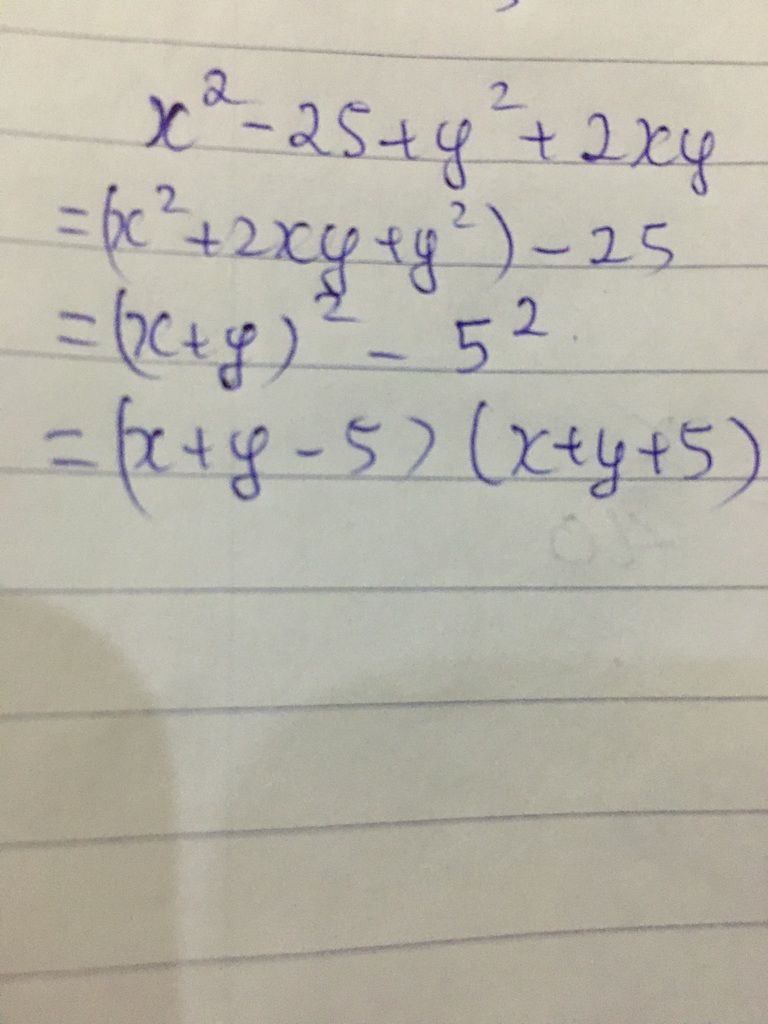 x² - 25 + y² + 2xy
= (x² + 2xy + y²) - 25
= (x + y)² - 5²
= (x + y - 5) (x + y + 5)